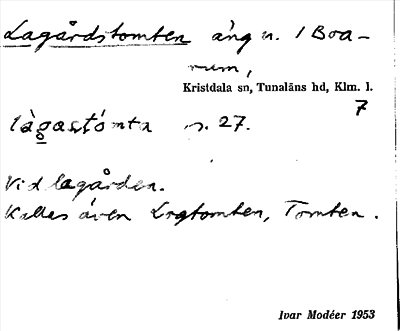 Lagårdstomten äng n. / Boa-
rum,
Kristdala sn, Tunaläns hd, Klm. l.
7
lågastómta s. 27.
Vid lagården.
Kallas även Lrgtomten, Tomten.
Ivar Modéer 1953